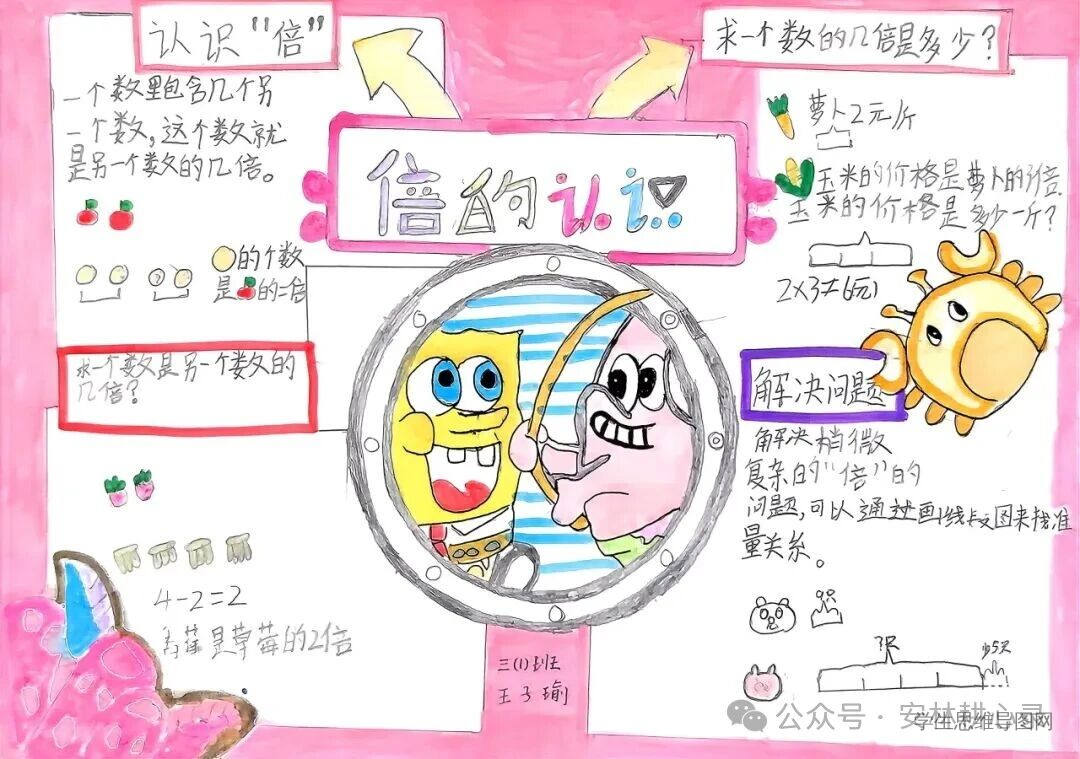 认识“倍”
一个数里包含几个另
一个数，这个数就
是另一个数的几倍。
的个数
是的二倍
求一个数是另一个数的
几倍？
4-2=2
是草莓的2倍
倍的认识
三(1)班
王子瑜
求一个数的几倍是多少？
萝卜2元/斤
玉米的价格是萝卜的3倍
玉米的价格是多少一斤？
2×3=6元
解决问题
解决稍微
复杂的“倍”的
问题，可以通过画线段图来找准
量关系。
少5只
公众号·安林耕心灵
学生思维导图网